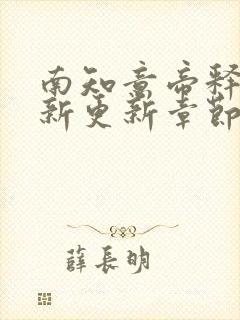 南知意帝释
新更新章節
薛長明